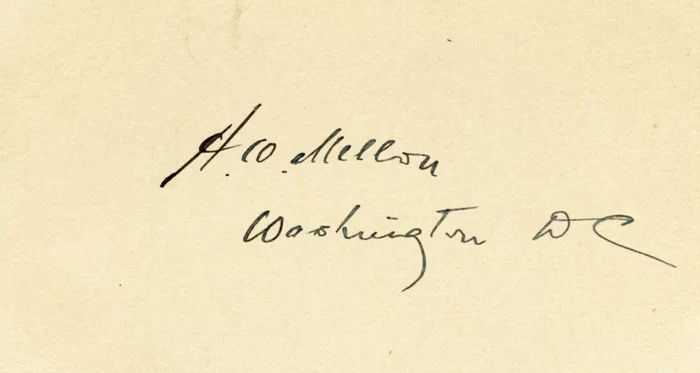 A. W. Mellon
Washington D C